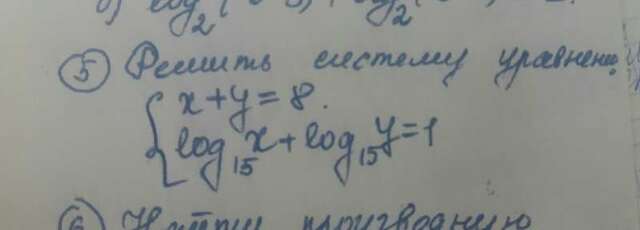 ⑤ Решить систему уравнени
x+y=8.
log₁₅x+log₁₅y=1
⑥ Найти производную